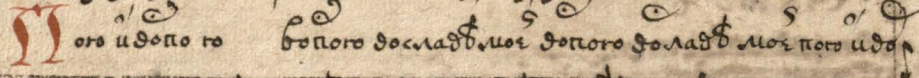 Пого й допо го бопого досладѣ моѣ допого доладѣ моѣ пого й до